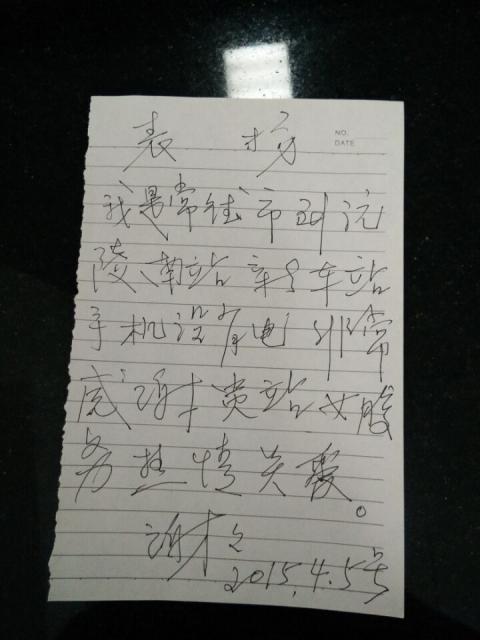 表 扬
NO.
DATE
我是常德市到沅
陵、南站 车站
手机没有电 非常
感谢贵站女服
务热情关爱。
谢谢
2015.4.5号